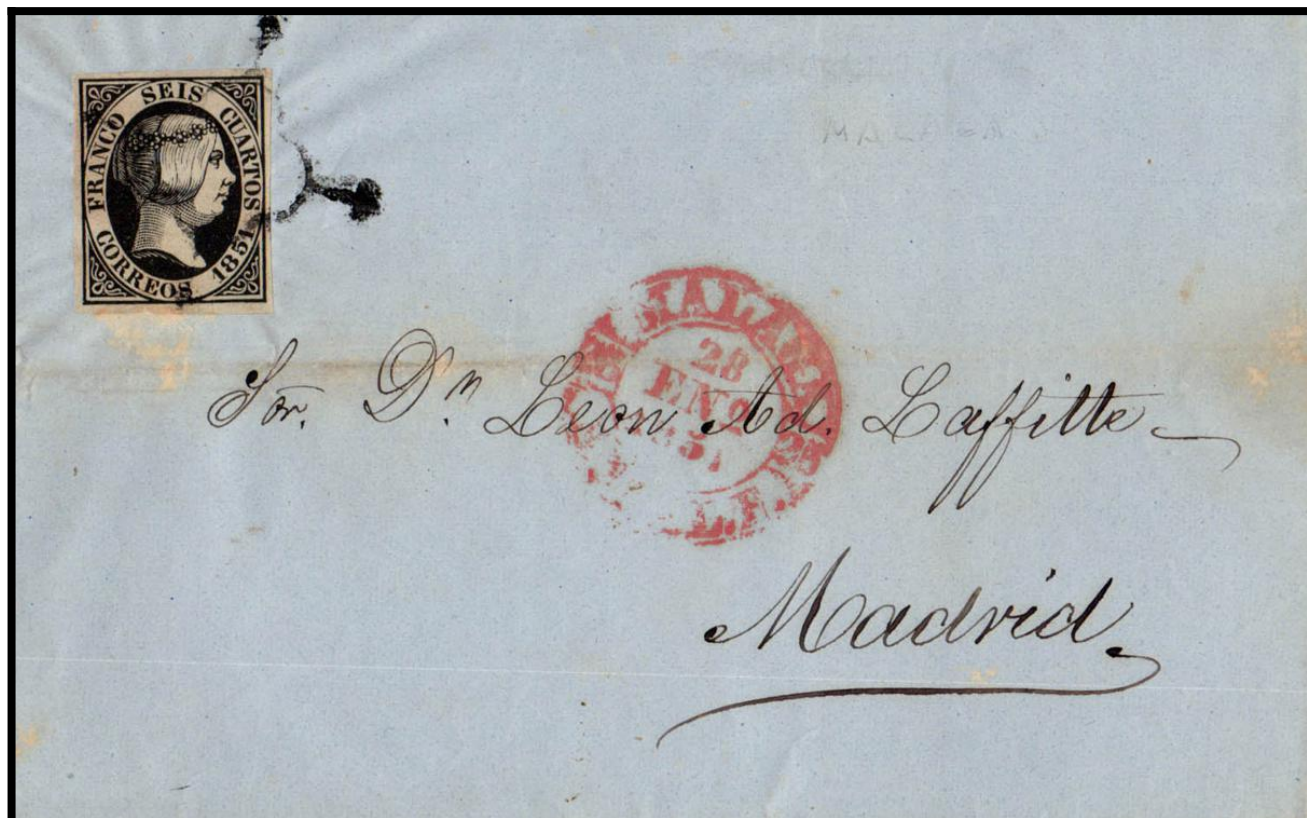 FRANCO SEIS CUARTOS
CORREOS 1851
MALAGA
28
ENE
1851
Sor. Dn Leon Ad. Laffitte
Madrid.